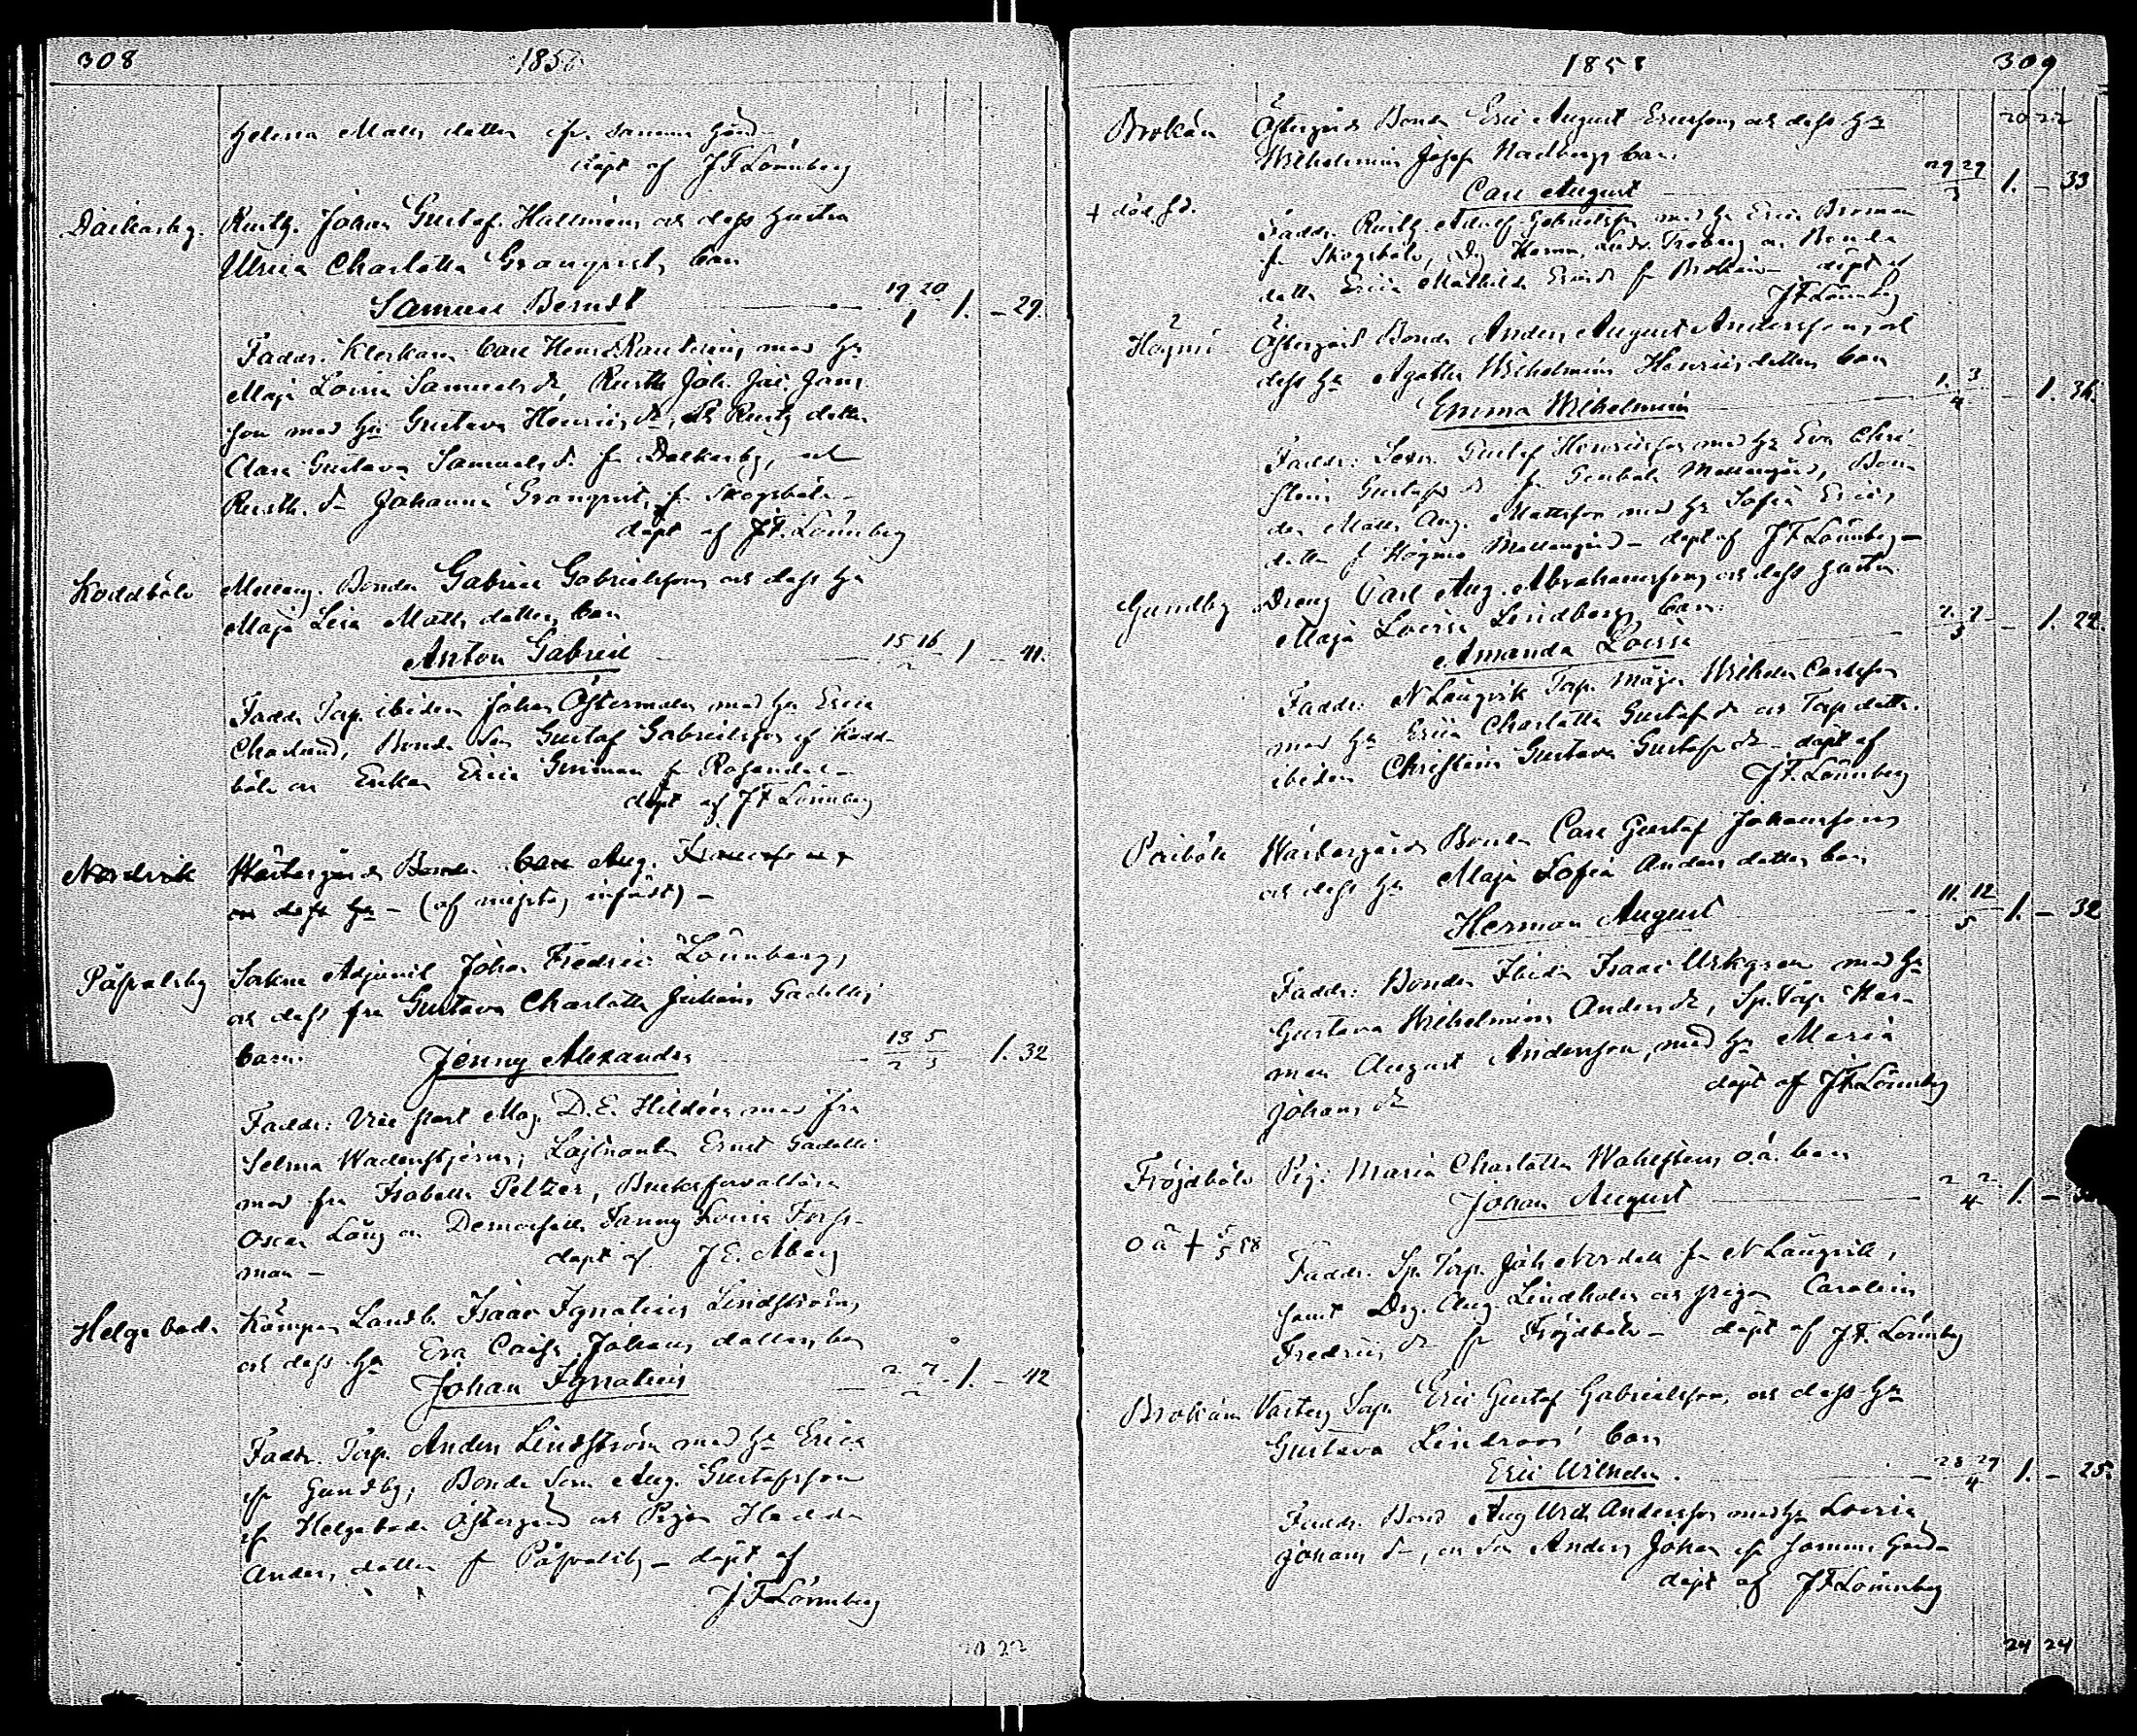 308
1858
Helena Matts dotter ifr. samma gård
döpt af J F Lönnberg
Dalkarby. Rusth. Johan Gustaf Hallméns och dess hustru
Ulrica Charlotta Granqvists barn
Samuel Berndt 19 20 1 1. - 29.
Faddr. Klockaren Carl Henr. med Hu
Maja Lovisa Samuels dr, Rusth Joh. Jac. Jans
son med Hu Gustava Henrics dr, Rusth dotter
Clara Gustava Samuels dr fr Dalkarby, och
Rusth. dr Johanna Granqvist, fr Skogsböle -
döpt af J F. Lönnberg
Koddböle Melleng. Bonden Gabriel Gabrielssons och dess Hu
Maja Lisa Matts dotters barn
Anton Gabriel 15 16 2 1 - 41.
Faddr Torp. ibidem Johan Östermalm med Hu Erica
Charlotta, Bonde Son Gustaf Gabrielsson af Kodd-
böle och Enkan Erica fr
döpt af J F Lönnberg
Nordvik Västergårds Bonden Carl Aug. Franssons
och dess Hu - (af misstag infördt) -
Påfvalsby Sockne Adjunct Johan Fredric Lönnbergs
och dess fru Gustava Charlotta Juliana Gadellis
barn. Jenny Alexandra 13 5 2 3 1. 32
Faddr: Vice past Mag. D. E. Hildéen med fru
Selma Wadenstjerna, Löjtnanten Ernst Gadelli
med fru Isabella Peltzer, Bruksförvaltaren
Oscar Lång och Demoiselle Fanny Lovisa Forss-
man - döpt af J E. Åberg
Helgeboda Kämpars Landb. Isaac Ignatius Lindströms
och dess Hu Eva Caisa Johans dotters barn
Johan Ignatius 2 7 2 1. - 42
Faddr. Torp. Anders Lindström med Hu Erica
ifr Gundby, Bonde Son Aug. Gustafsson
ifr Helgeboda Östergård och Pigan Hedda
Anders dotter fr Påfvalsby - döpt af
J F Lönnberg
20 22
1858
309
20 22
Brokärr Östergårds Bonden Eric August Erikssons och dess Hu
Wilhelmina Josefa Nordbergs barn.
Carl August 29 29 3 1. - 33
+ död. fd.
Faddr. Rusth Adolf Gabrielsson med Hu Erica Broman
fr Skogsböle, Dg Herm. Andr. Troberg och Bonde
dottr Erica Mathilda Erics dr fr Brokärr - döpt af
J F Lönnberg
Högmo Östergårds Bonden Anders August Anderssons och
dess Hu Agatha Wilhelmina Henrics dotters barn
Emma Wilhelmina 1. 3 4 - 1. 36.
Faddr: Gustaf Henricsson med Hu Eva Chri-
stina Gustafs dr fr Genböle Mellangård, Bon-
den Matts Aug. Mattsson med Hu Sofia Erics
dotter fr Högmo Mellangård - döpt af J F Lönnberg -
Gundby Dreng Carl Aug. Abrahamssons och dess hustru
Maja Lovisa Lindbergs barn.
Amanda Lovisa 2. 2 5 - 1. 22.
Faddr: N Långvik Torp. Måg Wilhelm Carlsson
med Hu Erica Charlotta Gustafs dr och Torp dotter.
ibidem Christina Gustava Gustafs dr - döpt af
J F. Lönnberg
Pörböle Västergårds Bonden Carl Gustaf Johanssons
och dess Hu Maja Sofia Anders dotters barn
Herman August 11. 12 5 1. - 32
Faddr: Bonden Ibidem Isaac med Hu
Gustava Wilhelmina Anders dr, Sp. Torp. Her-
man August Andersson, med Hu Maria
Johans dr döpt af J F. Lönnberg
Fröjdböle Pig: Maria Charlotta Wahlstens o.ä. barn
Johan August 2 2 4 1. -
o ä + 5/5 58
Faddr. Sp. Torp. Joh Nordell fr N Långvik,
samt Drg. Aug Lindholm och pigan Carolina
Fredrics dr fr Fröjdböle - döpt af J F. Lönnberg
Brokärr Västerg Torp. Eric Gustaf Gabrielsson, och dess Hu
Gustava Lindroos' barn
Eric Wilhelm. 28 29 4 1. - 25.
Faddr. Bond Aug Wilh Andersson med Hu Lovisa
Johans dr, och Son Anders Johan ifr samma gård
döpt af J F Lönnberg
24 24